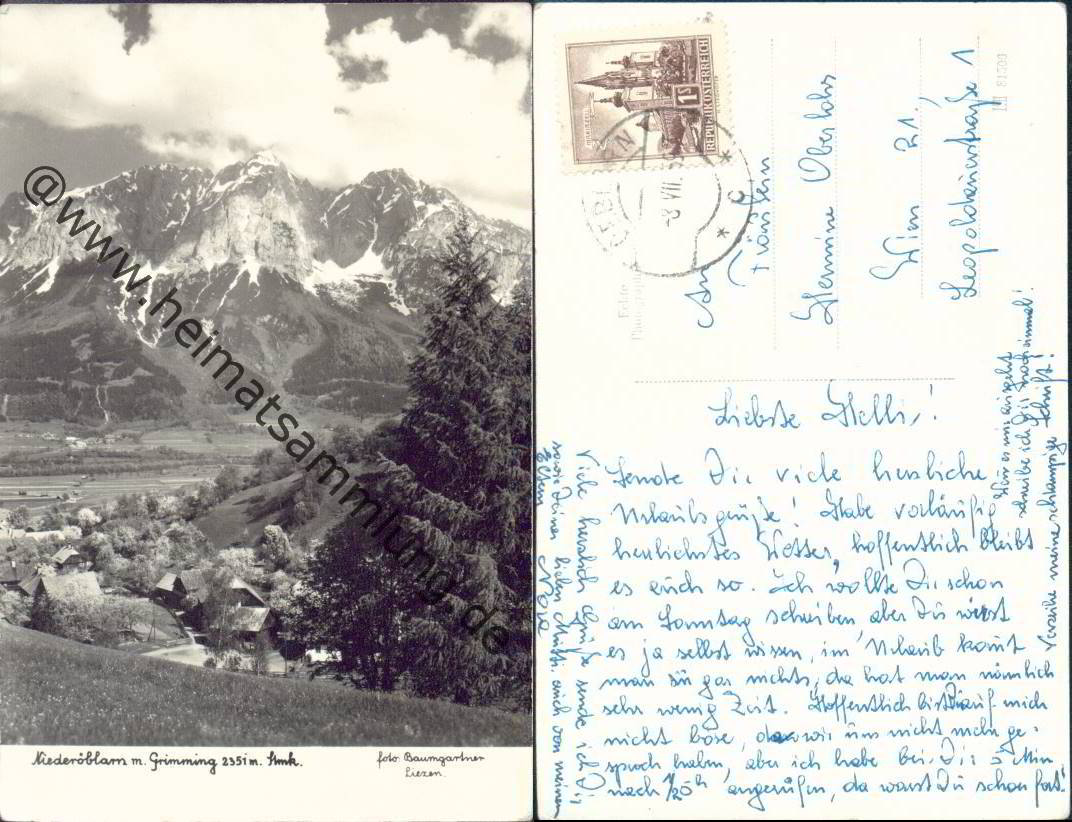 @www.heimatsammlung.de
Niederöblarn m. Grimming 2351m. Stmk.
foto: Baumgartner
Liezen.
MARIAZELL
1S
REPUBLIK ÖSTERREICH
8 VII.
c
Echte
Photographie
81500
An
Fräulein
Hermine Oberlohr
Wien 21.,
Leopoldauerstraße 1
Liebste Helli!
Sende Dir viele herzliche
Urlaubsgrüße! Habe vorläufig
herrlichstes Wetter, hoffentlich bleibt
es auch so. Ich wollte Dir schon
am Samstag schreiben, aber Du wirst
es ja selbst wissen, im Urlaub kommt
man zu gar nichts, da hat man nämlich
sehr wenig Zeit. Hoffentlich bist Du auf mich
nicht böse, da wir uns nicht mehr ge-
sproch haben, aber ich habe bei Dir 5 Min
nach 1/2 5h angerufen, da warst Du schon fort.
Wenn es mir ausgeht
schreibe ich Dir noch einmal!
Verzeihe meine schlampige Schrift!
Viele herzlich Grüße sende ich Dir
sowie Deiner lieben Mutti. auch von meinen
Eltern